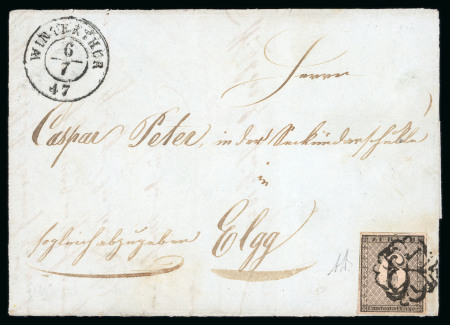 WINTERTHUR
6
7
47
Herrn
Caspar Peter, in der Seckundarschule
in
sogleich abzugeben Elgg
ZÜRICH
6